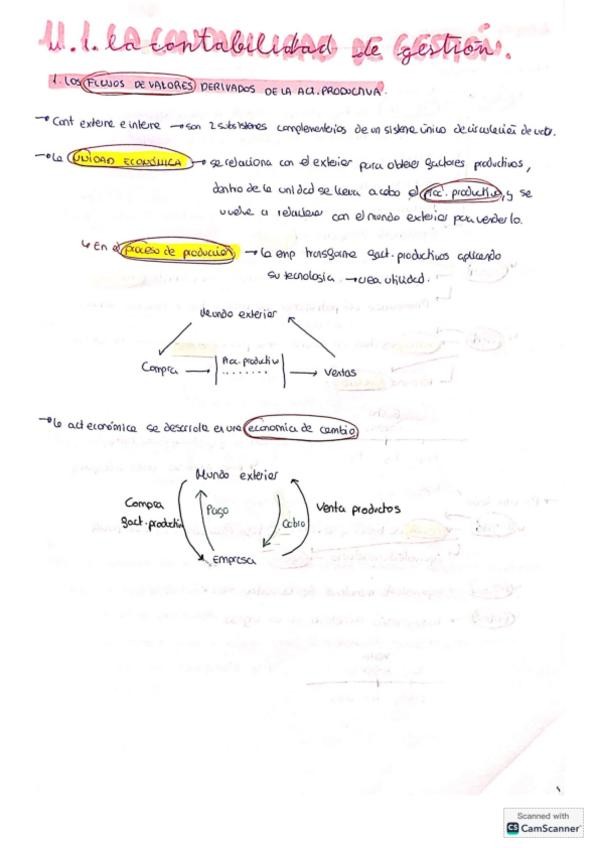 U.1. La contabilidad de gestión.
1. LOS FLUJOS DE VALORES DERIVADOS DE LA ACT. PRODUCTIVA.
→ Cont externa e interna → son 2 subsistemas complementarios de un sistema único de circulación de valo.
→ La UNIDAD ECONÓMICA → se relaciona con el exterior para obtener factores productivos,
dentro de la unidad se lleva a cabo el, y se
vuelve a relacionar con el mundo exterior para venderlo.
↳ En el proceso de producción → la emp transforma fact. productivos aplicando
su tecnología → crea utilidad.
Mundo exterior
Compra → Act. productiva → Ventas
→ La act económica se desarrolla en una economía de cambio
Mundo exterior
Compra fact. productivo
Pago
Cobro
Venta productos
Empresa
Scanned with
CS CamScanner